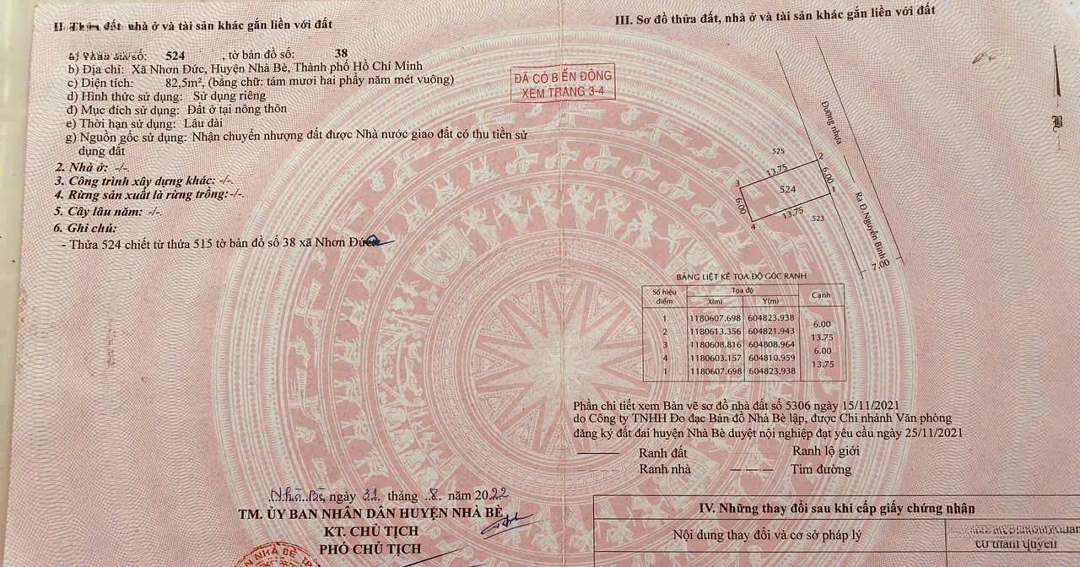 II. Thửa đất, nhà ở và tài sản khác gắn liền với đất
số: 524 , tờ bản đồ số: 38
b) Địa chỉ: Xã Nhơn Đức, Huyện Nhà Bè, Thành phố Hồ Chí Minh
c) Diện tích: 82,5m², (bằng chữ: tám mươi hai phẩy năm mét vuông)
d) Hình thức sử dụng: Sử dụng riêng
đ) Mục đích sử dụng: Đất ở tại nông thôn
e) Thời hạn sử dụng: Lâu dài
g) Nguồn gốc sử dụng: Nhận chuyển nhượng đất được Nhà nước giao đất có thu tiền sử
dụng đất
2. Nhà ở: -/-
3. Công trình xây dựng khác: -/-
4. Rừng sản xuất là rừng trồng:-/-
5. Cây lâu năm: -/-
6. Ghi chú:
- Thửa 524 chiết từ thửa 515 tờ bản đồ số 38 xã Nhơn Đức
Nhà Bè, ngày 31 tháng 8 năm 2022
TM. ỦY BAN NHÂN DÂN HUYỆN NHÀ BÈ
KT. CHỦ TỊCH
PHÓ CHỦ TỊCH
ĐÃ CÓ BIẾN ĐỘNG
XEM TRANG 3-4
III. Sơ đồ thửa đất, nhà ở và tài sản khác gắn liền với đất
B
Đường nhựa
Ra Đ Nguyễn Bình
7.00
525
2
13.75
6.00
3
524
1
6.00
13.75
523
4
BẢNG LIỆT KÊ TỌA ĐỘ GÓC RANH
Số hiệu điểm Tọa độ Cạnh
X(m) Y(m)
1 1180607.698 604823.938
6.00
2 1180613.356 604821.943
13.75
3 1180608.816 604808.964
6.00
4 1180603.157 604810.959
13.75
1 1180607.698 604823.938
Phần chi tiết xem Bản vẽ sơ đồ nhà đất số 5306 ngày 15/11/2021
do Công ty TNHH Đo đạc Bản đồ Nhà Bè lập, được Chi nhánh Văn phòng
đăng ký đất đai huyện Nhà Bè duyệt nội nghiệp đạt yêu cầu ngày 25/11/2021
Ranh đất Ranh lộ giới
Ranh nhà Tim đường
IV. Những thay đổi sau khi cấp giấy chứng nhận
Nội dung thay đổi và cơ sở pháp lý
có thẩm quyền